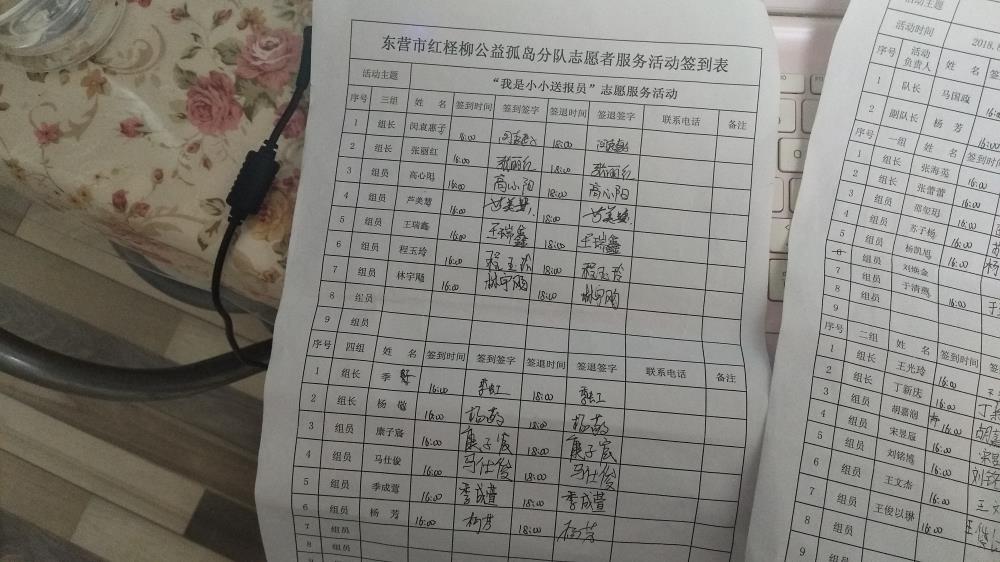 东营市红柽柳公益孤岛分队志愿者服务活动签到表
活动主题 “我是小小送报员”志愿服务活动
序号 三组 姓 名 签到时间 签到签字 签退时间 签退签字 联系电话 备注
1 组长 闵袁惠子 18:00
2 组长 张丽红 16:00 张丽红 18:00 张丽红
3 组员 高心阳 16:00 高心阳 18:00 高心阳
4 组员 芦美慧 16:00 芦美慧 18:00 芦美慧
5 组员 王瑞鑫 16:00 王瑞鑫 18:00 王瑞鑫
6 组员 程玉玲 16:00 程玉玲 18:00 程玉玲
7 组员 林宇飏 16:00 林宇飏 18:00 林宇飏
8 组员
9 组员
序号 四组 姓 名 签到时间 签到签字 签退时间 签退签字 联系电话 备注
1 组长 季 16:00 18:00
2 组长 杨 16:00 18:00
3 组员 康子宸 16:00 康子宸 18:00 康子宸
4 组员 马仕俊 16:00 马仕俊 18:00 马仕俊
5 组员 季成萱 16:00 季成萱 18:00 季成萱
6 组员 杨 芳 16:00 杨芳 18:00 杨芳
7 组员
8
活动主题
活动时间 2018.
序号 活动负责人 姓 名 签到
1 队长 马国政
2 副队长 杨 芳 16:00
序号 一组 姓 名 签到时
1 组长 张海英 16:00
2 组长 张蕾蕾 16:00
3 组员 邵玺珺 16:00
4 组员 苏子杨 16:00
5 组员 杨凯旭 16:00
6 组员 刘焕金
7 组员 于清燕 16:00
8 组员
9 组员
序号 二组 姓 名 签到时间
1 组长 王光玲 16:00
2 组长 丁新庆 16:00
3 组员 胡嘉 16:00
4 组员 宋昱寇 16:00
5 组员 刘铭 16:00
6 组员 王文杰 16:00
7 组员 王俊以琳 16:00
8 组员
9